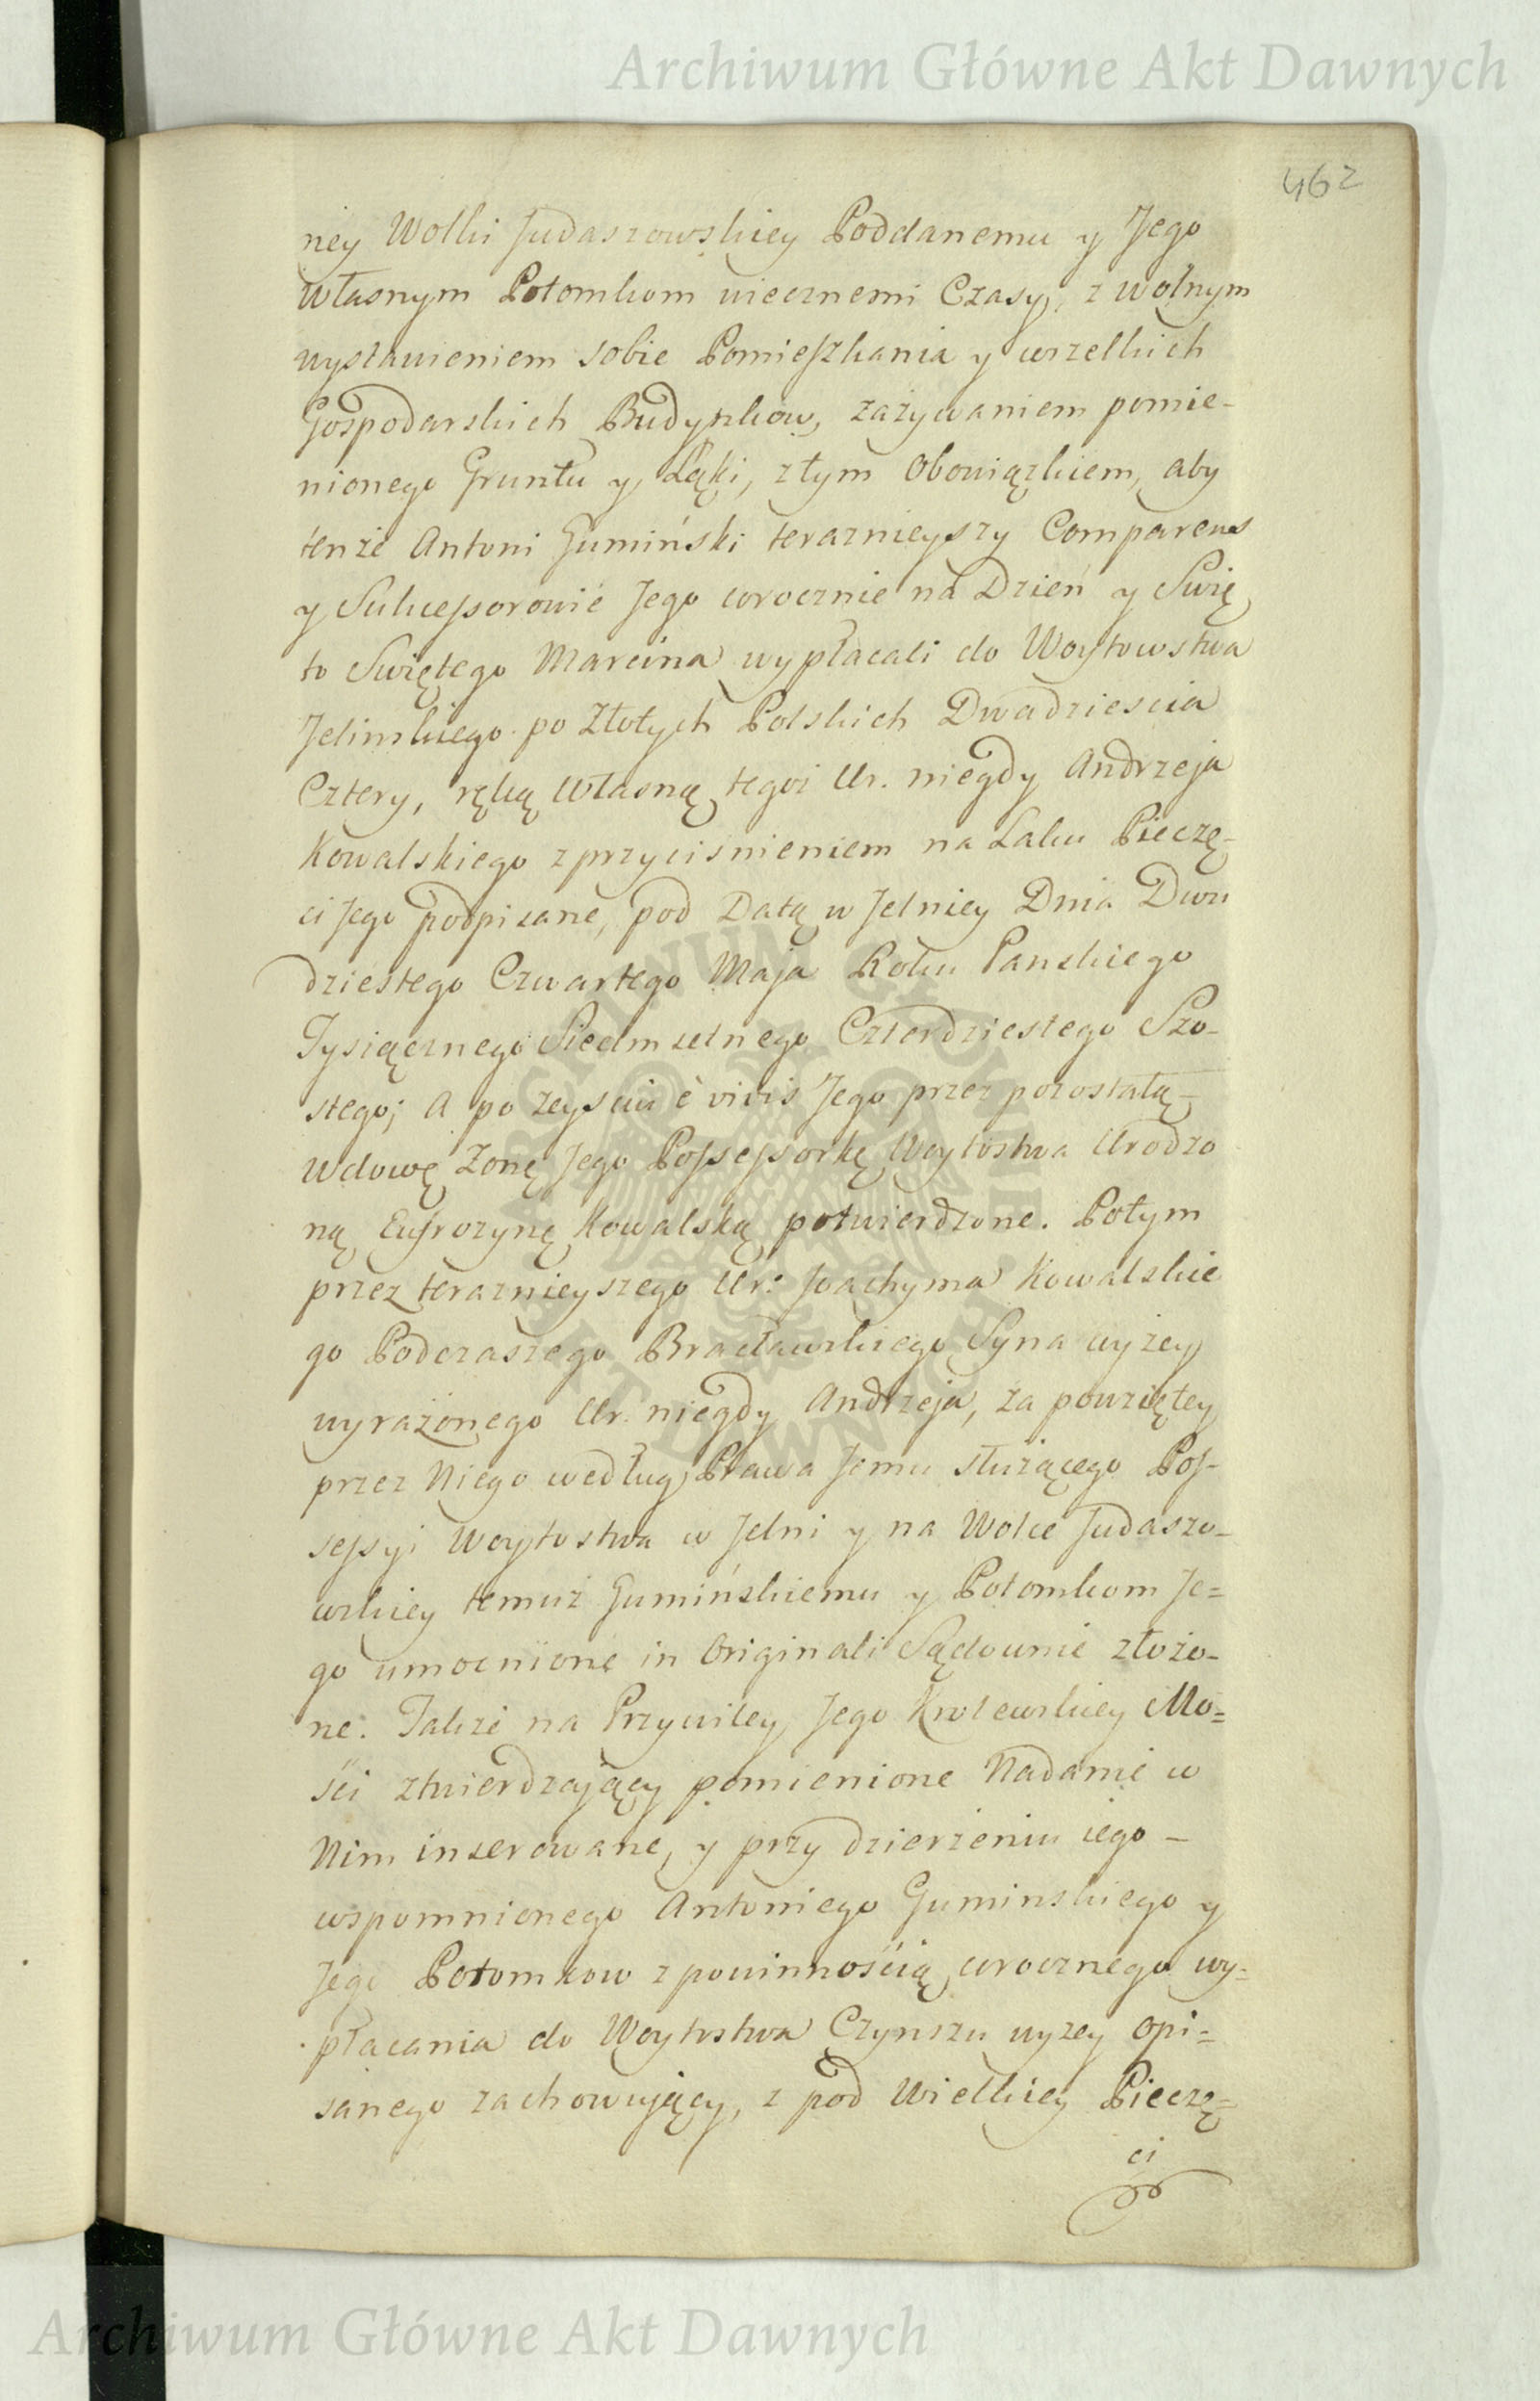 Archiwum Główne Akt Dawnych
462
ney Wolki Judaszowskiey Poddanemu y Jego
własnym Potomkom wiecznemi Czasy, z wolnym
wystawieniem sobie Pomieszkania y wszelkich
Gospodarskich Budynkow, zażywaniem pomie-
nionego Gruntu y Łąki, z tym Obowiązkiem, aby
tenże Antoni Gumiński terazńieyszy Comparens
y Sukcessorowie Jego corocznie na Dzień y Swię
to Swiętego Marcina wypłacali do Woytowstwa
Jelinskiego po Złotych Polskich Dwadziescia
Cztery, ręką własną tegoż Ur. niegdy Andrzeja
Kowalskiego z przycisnieniem na Laku Pieczę-
ci Jego podpisane, pod Datą w Jelniey Dnia Dwu
dziestego Czwartego Maja Roku Panskiego
Tysiącznego Siedmsetnego Czterdziestego Szo-
stego; A po zeysciu è vivis Jego przez pozostałą
Wdowę Zonę Jego Possessorkę Woytostwa Urodzo
ną Eufrozynę Kowalską potwierdzone. Potym
przez terazńieyszego Ur: Joachyma Kowalskie
go Podczaszego Bracławskiego Syna wyżey
wyrażonego Ur. niegdy Andrzeja, za powziętey
przez Niego według Prawa Jemu służącego Pos-
sessyi Woytostwa w Jelni y na Wolce Judaszo-
wskiey temuż Gumińskiemu y Potomkom Je=
go umocnione in Originali Sądownie złożo-
ne. Takze na Przywiley Jego Krolewskiey Mo=
ści ztwierdzający pomienione Nadanie w
Nim inserowane, y przy dzierżeniu iego –
wspomnionego Antoniego Guminskiego y
Jego Potomkow z powinnością corocznego wy=
płacania do Woytostwa Czynszu wyzey opi=
sanego zachowujący, z pod Wielkiey Pieczę=
ci
Archiwum Główne Akt Dawnych